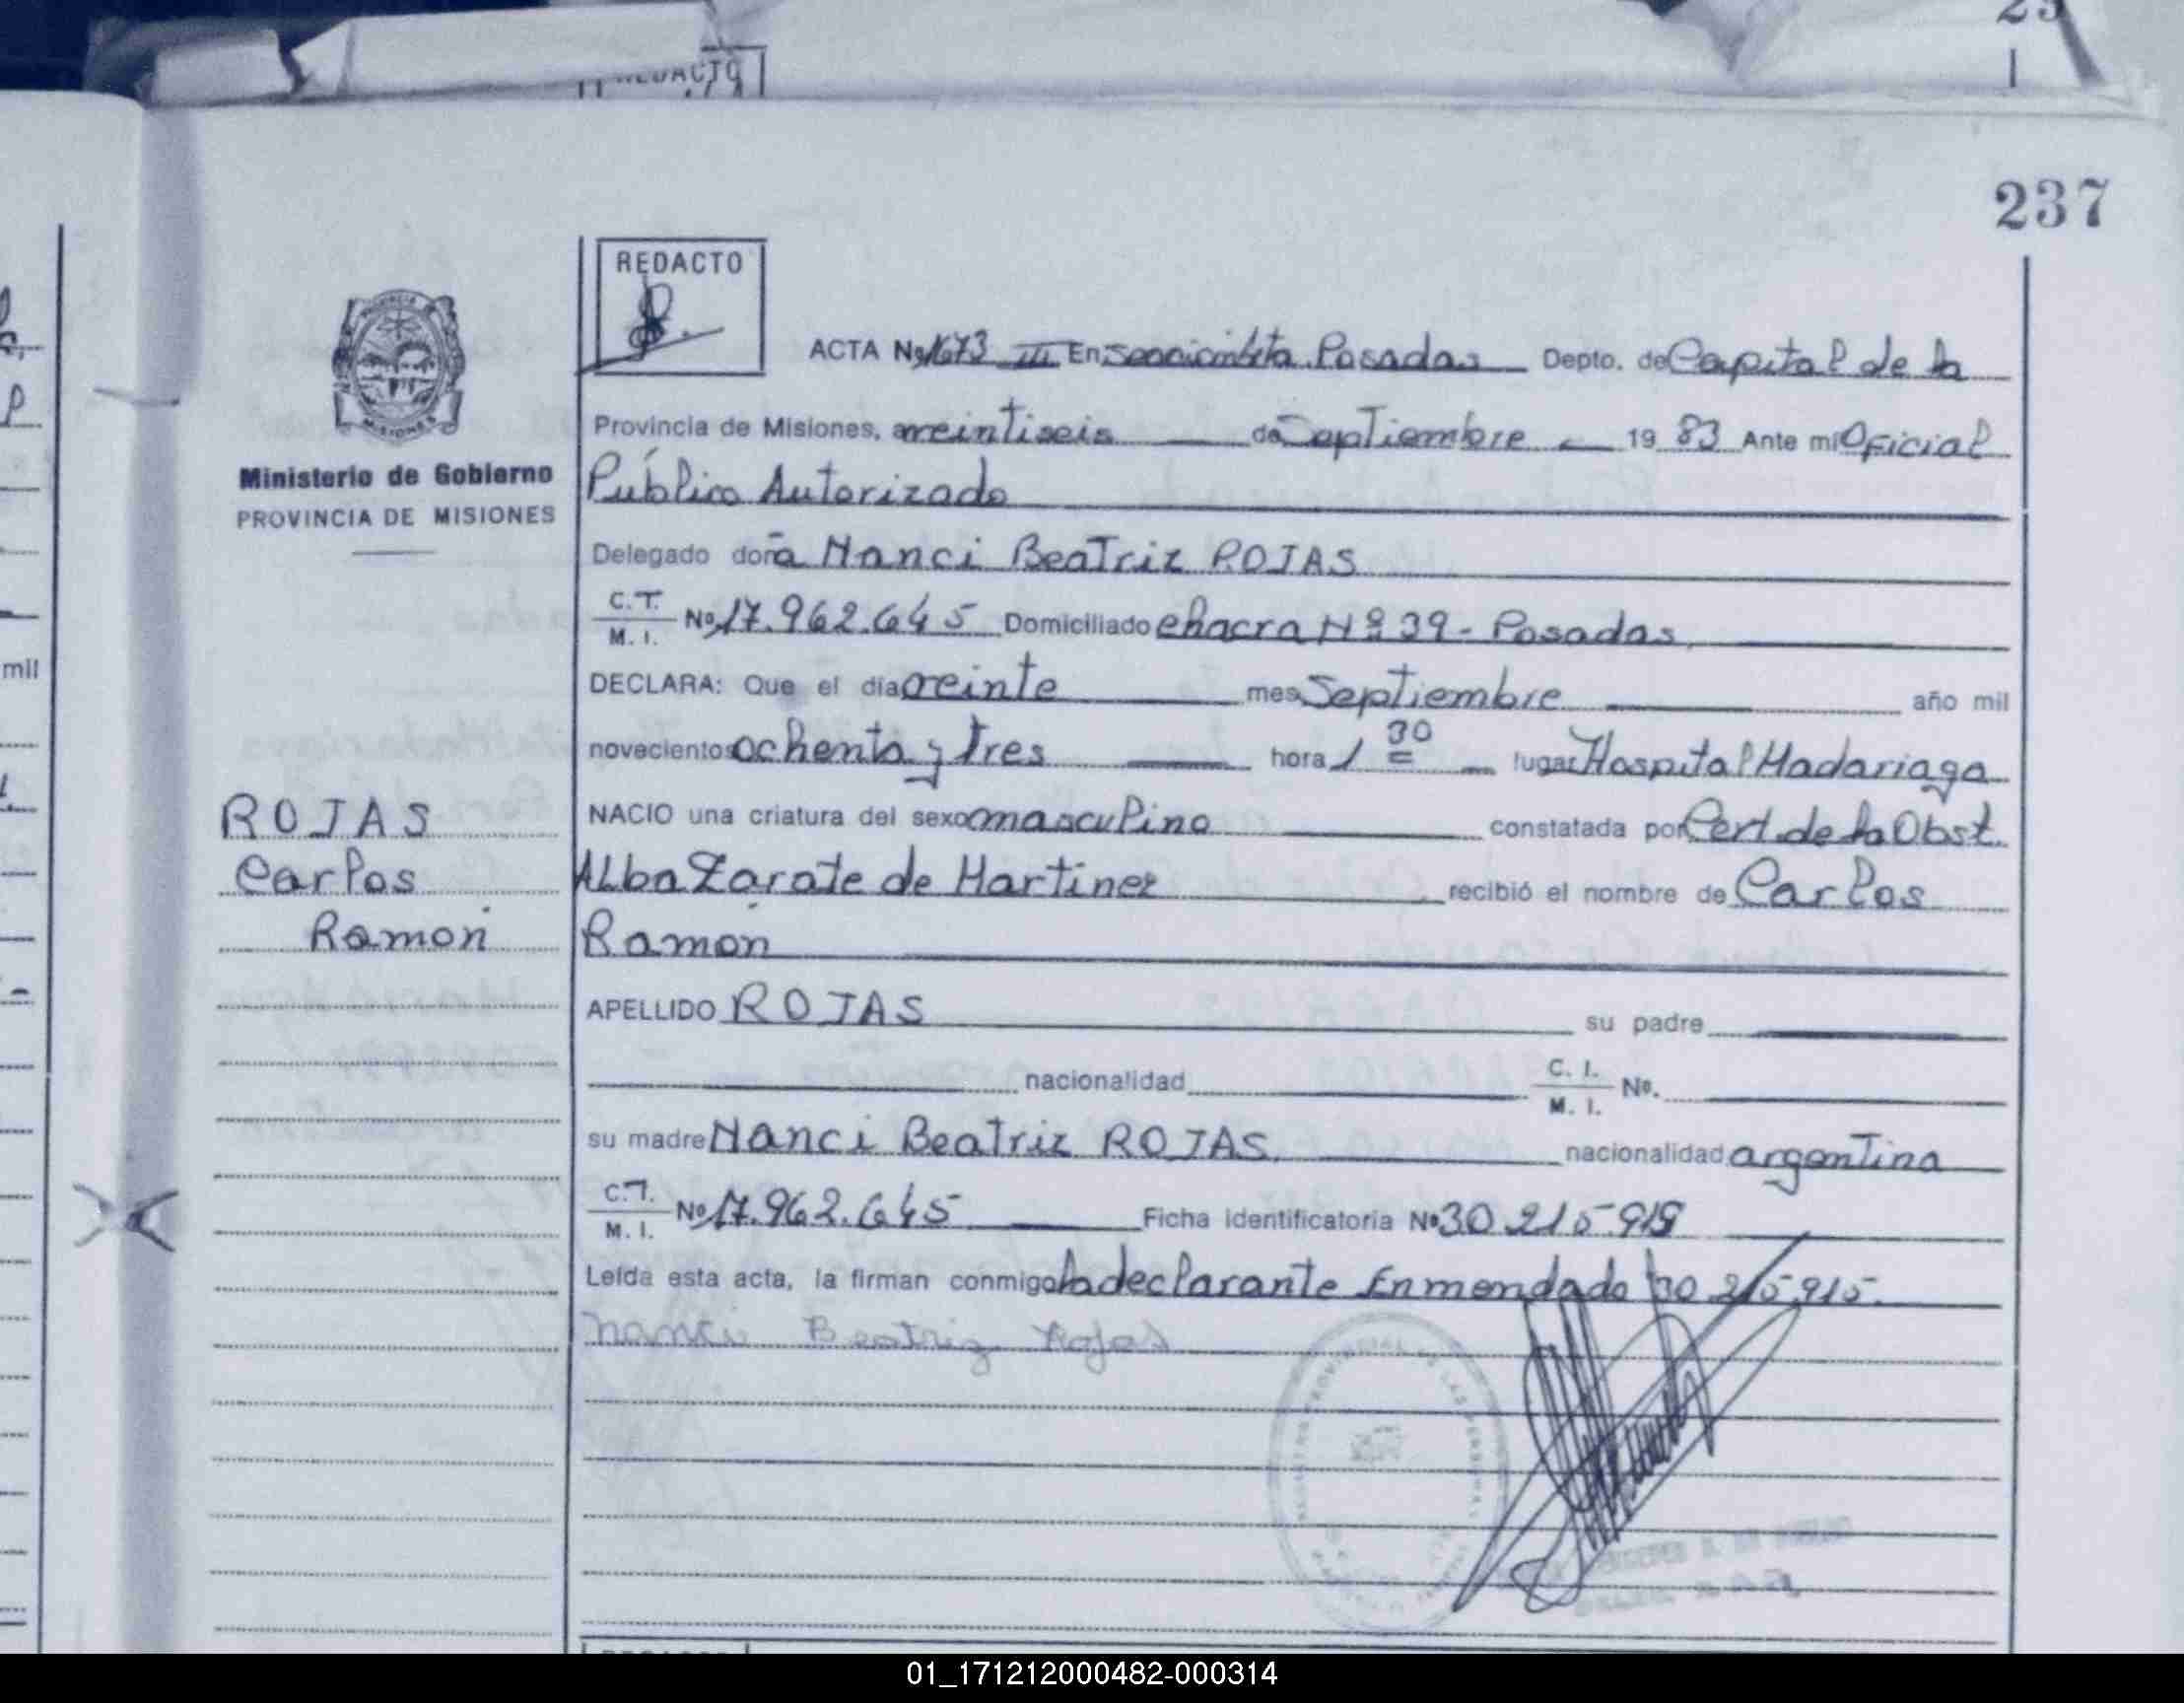 REDACTO
237
REDACTO
ACTA Nº 1673 III En Posadas Depto. de Capital de la
Provincia de Misiones, a veintiseis de Septiembre 19 83 Ante mi Oficial
Ministerio de Gobierno
PROVINCIA DE MISIONES
Público Autorizado
Delegado doña Nanci Beatriz ROJAS
C.I. M. I. Nº 17.962.645 Domiciliado chacra Nº 39 - Posadas
DECLARA: Que el día veinte mes Septiembre año mil
novecientos ochenta y tres hora 1 30 lugar Hospital Madariaga
mil
NACIO una criatura del sexo masculino constatada por Cert. de la Obst.
ROJAS
Carlos
Ramón
Alba Zarate de Martinez recibió el nombre de Carlos
Ramón
APELLIDO ROJAS su padre
nacionalidad C. I. M. I. Nº.
su madre Nanci Beatriz ROJAS nacionalidad argentina
C.I. M. I. Nº 17.962.645 Ficha identificatoria Nº 30.215.915
Leída esta acta, la firman conmigo la declarante Enmendado 30.215.915.
Beatriz Rojas
01_171212000482-000314